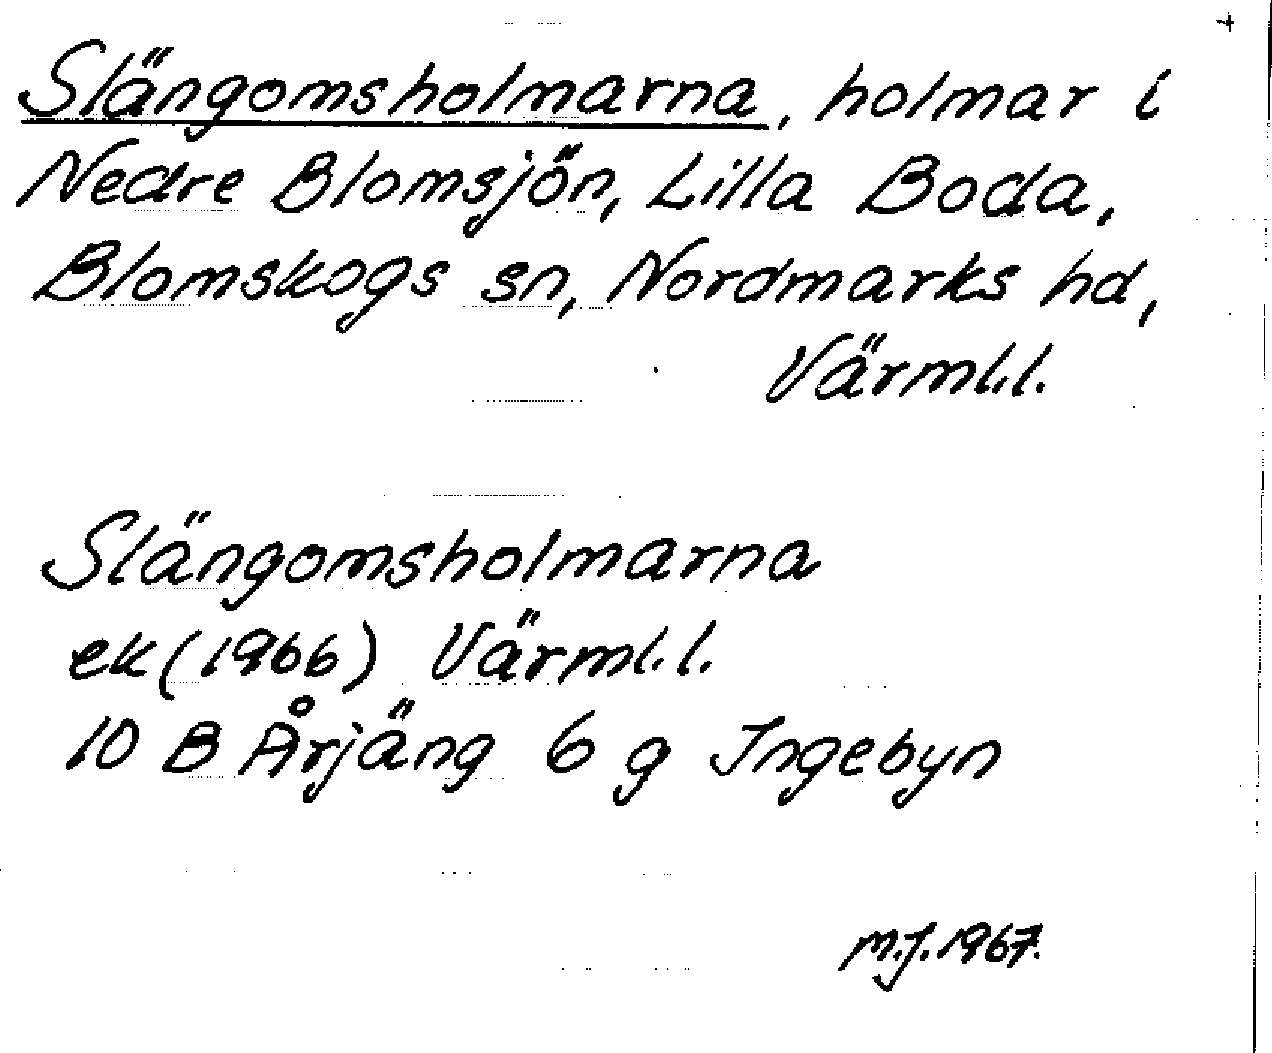 Slängomsholmarna, holmar i
Nedre Blomsjön, Lilla Boda,
Blomskogs sn, Nordmarks hd,
Värml.l.
Slängomsholmarna
ek (1966) Värml.l.
10 B Årjäng 6 g Ingebyn
M.J. 1967.